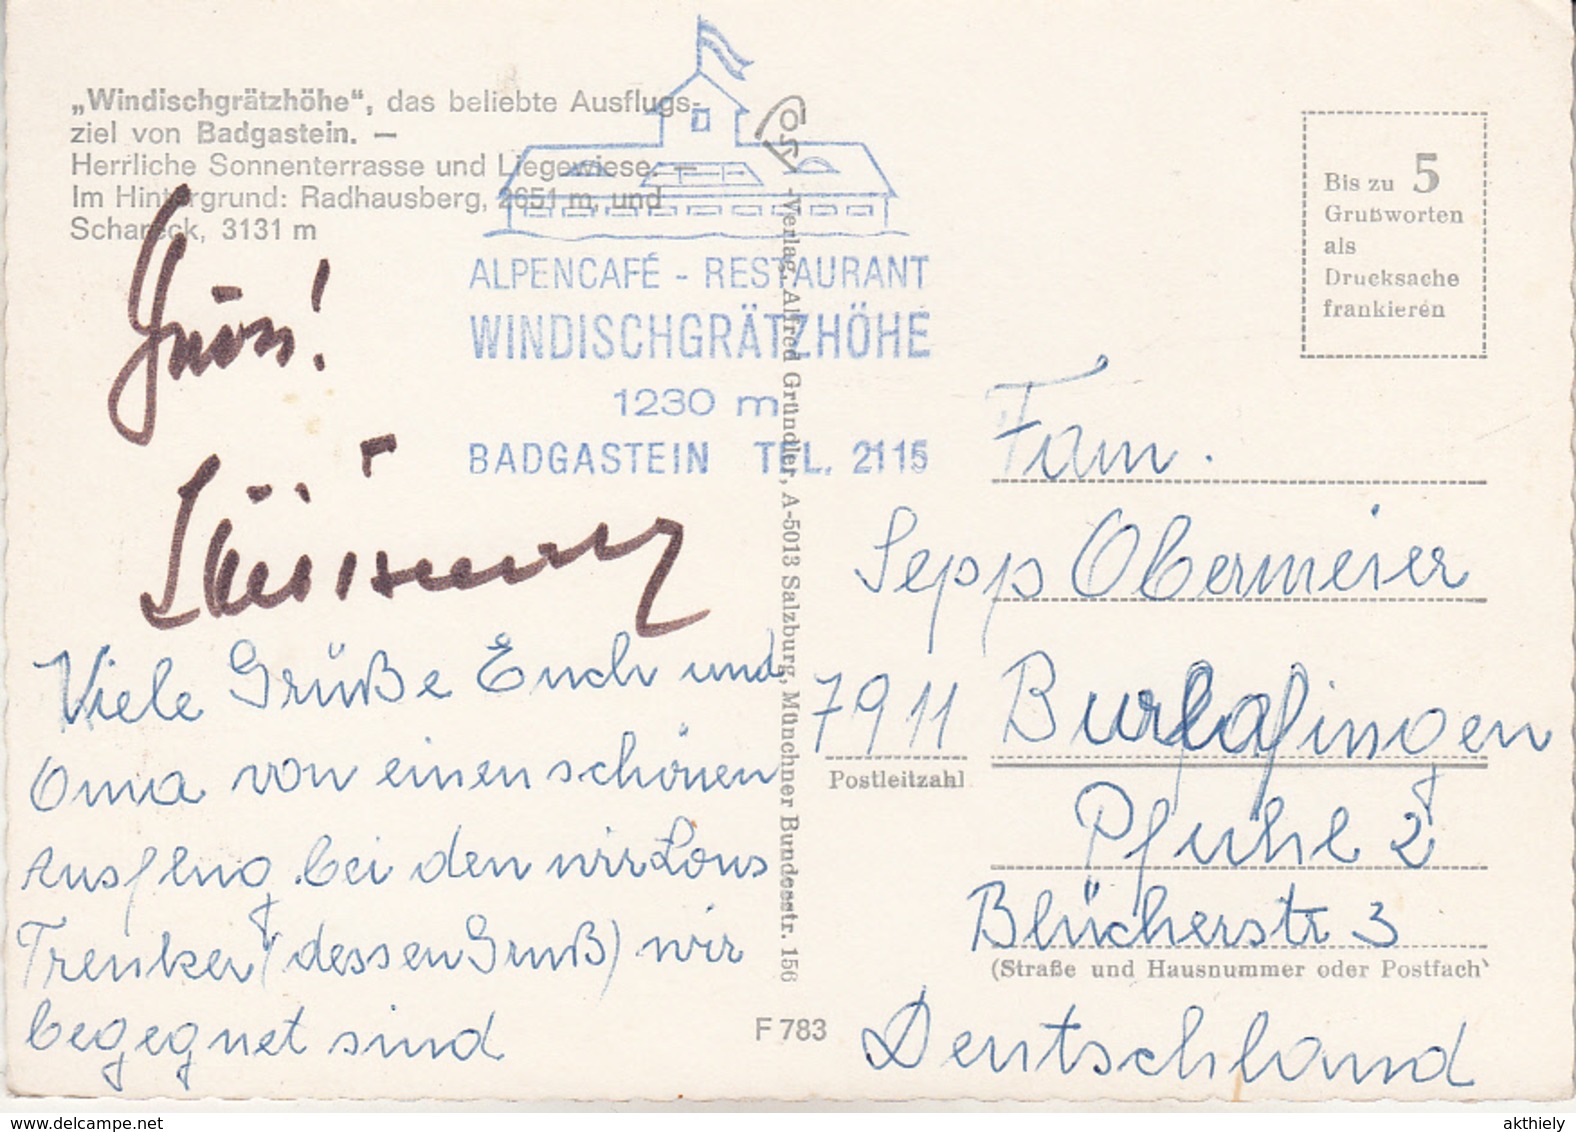 „Windischgrätzhöhe“, das beliebte Ausflugs-
ziel von Badgastein. —
Herrliche Sonnenterrasse und Liegewiese. —
Im Hintergrund: Radhausberg, 2651 m, und
Schareck, 3131 m
ALPENCAFÉ - RESTAURANT
WINDISCHGRÄTZHÖHE
1230 m
BADGASTEIN TEL. 2115
Viele Grüße Euch und
Oma von einen schönen
Ausflug bei den wir Lous
Trenker (dessen Gruß) wir
begegnet sind
Verlag Alfred Gründler, A-5013 Salzburg, Münchner Bundesstr. 156
F 783
Bis zu 5
Grußworten
als
Drucksache
frankieren
Fam.
Sepp Obermeier
7911 Burlafingen
Postleitzahl
Pfuhl 2
Blücherstr 3
(Straße und Hausnummer oder Postfach)
Deutschland
www.delcampe.net
akthiely